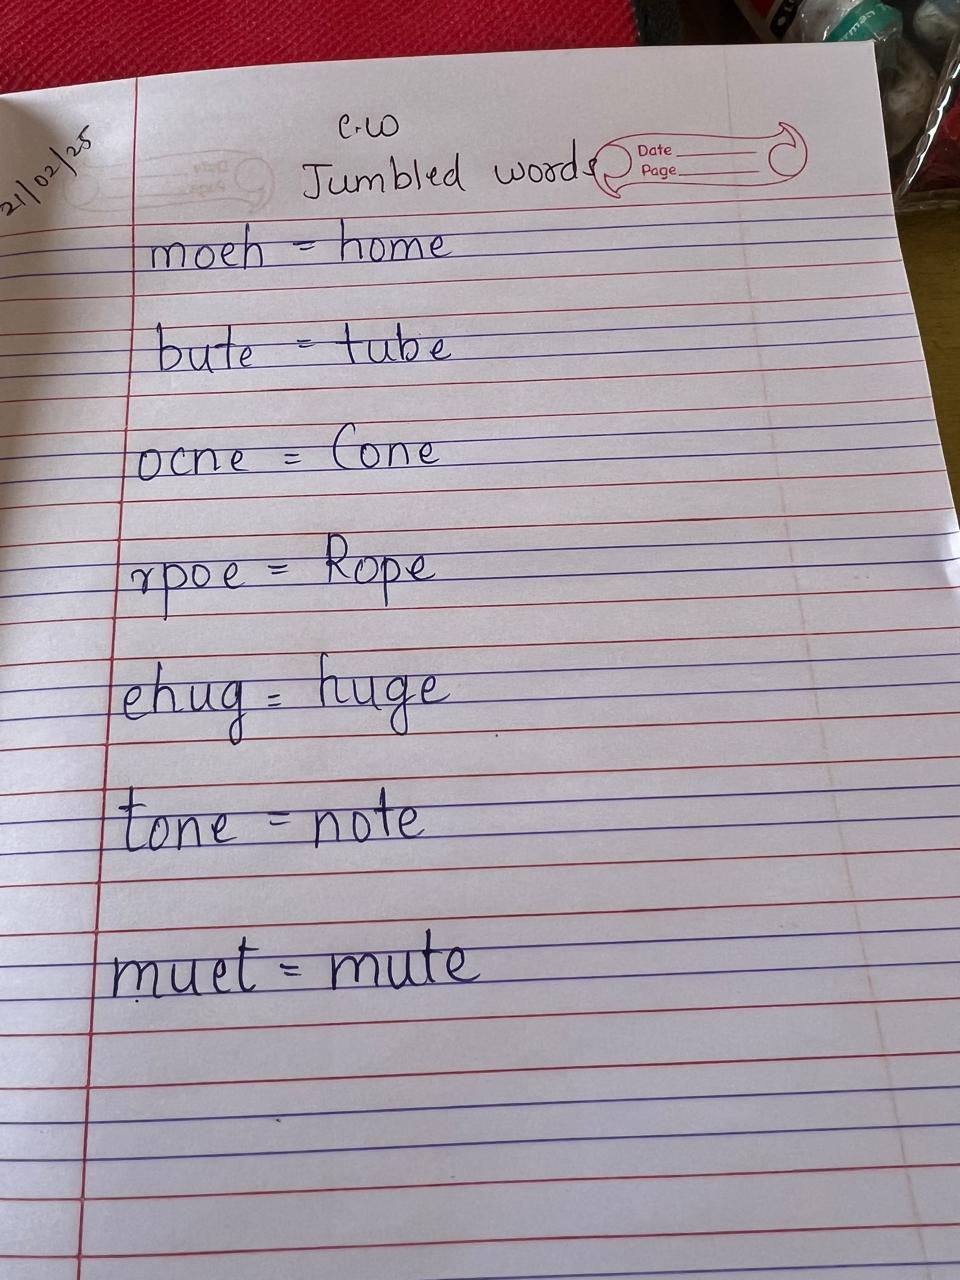 21/02/25
C.W
Jumbled words
Date
Page
moeh = home
bute = tube
ocne = Cone
rpoe = Rope
ehug = huge
tone = note
muet = mute